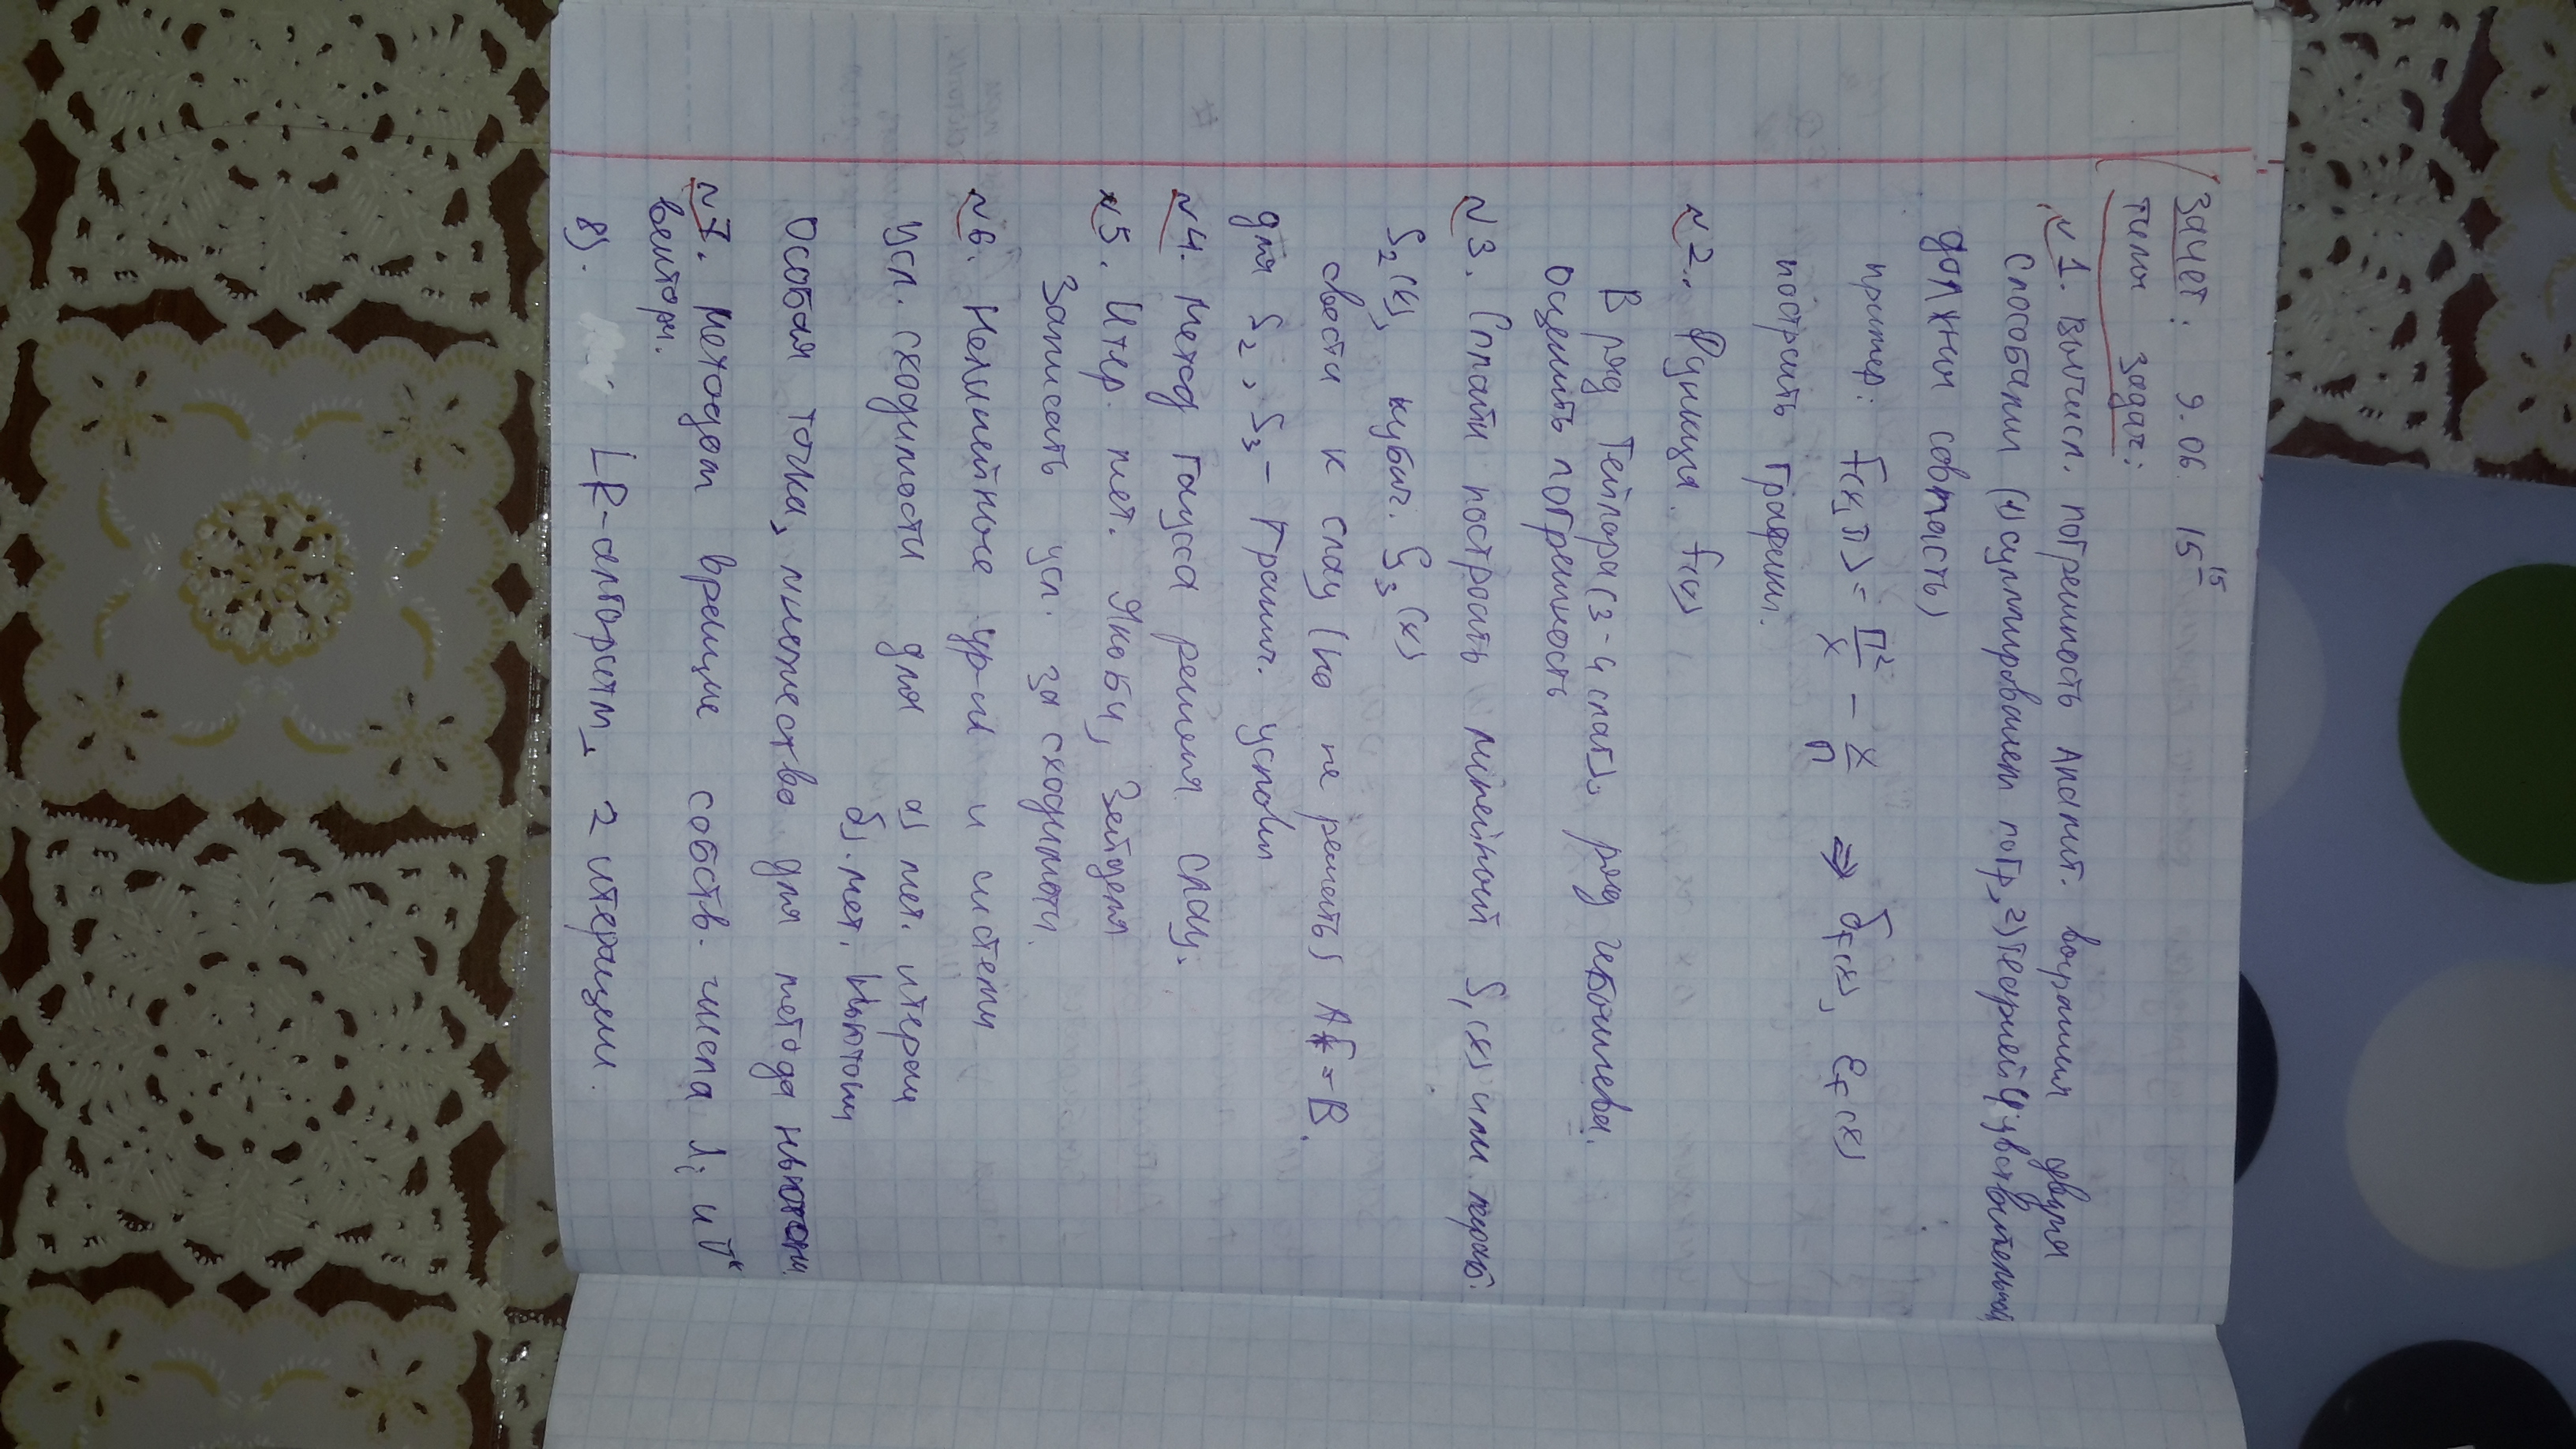 Зачет: 9.06 15 15
Темы задач:
№1. Вычисл. погрешность аналит. выражения двумя
способами (1) суммированием погр, 2) теорией чувствительно
должны совпасть)
пример: f(x,π) = π²/x - x/π ⇒ δf(x), ef(x)
построить график.
№2. Функция f(x)
В ряд Тейлора (3-4 слаг). ряд Чебышева.
Оценить погрешность
№3. Сплайн построить линейный S₁(x) или параб.
S₂(x), кубич. S₃(x)
свести к слау (но не решать) = B.
для S₂, S₃ - Гранич. условия
№4. Метод Гаусса решения слау.
№5. Итер. мет. Якоби, Зейделя
Записать усл. за сходимости.
№6. Нелинейные ур-ия и системы
Усл. сходимости для а) мет. итерац
б). мет. Ньютона
Особая точка, множество для метода Ньютона
№7. Методом вращие собств. числа λi и
векторы.
8). LR-алгоритм, 2 итерации.